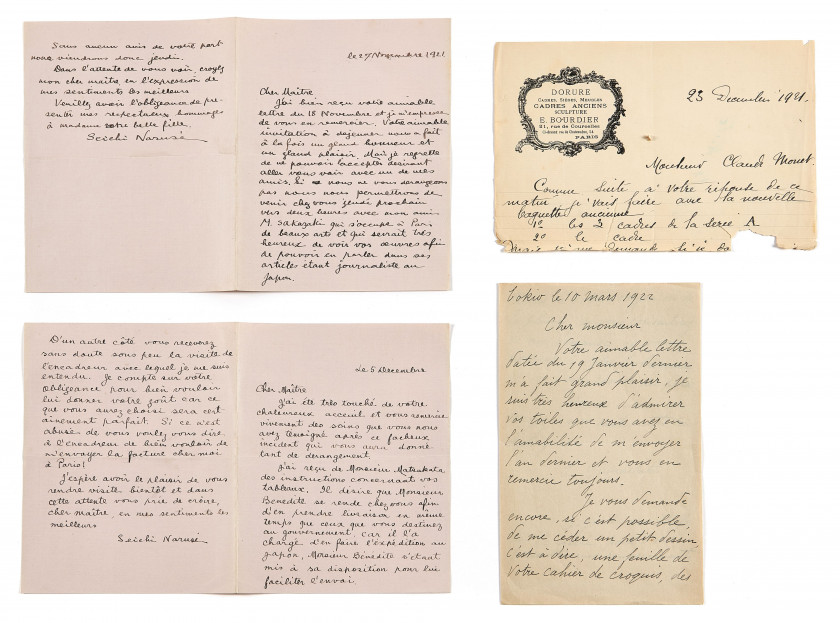 le 27 Novembre 1921
Cher Maître
J'ai bien reçu votre aimable
lettre du 18 Novembre et je m'empresse
de vous en remercier. Votre aimable
invitation à dejeuner nous a fait
à la fois un grand honneur et
un grand plaisir. Mais je regrette
de ne pouvoir l'accepter desirant
aller vous voir avec un de mes
amis. Si nous ne vous derangeons
pas nous nous permettrons de
venir chez vous jeudi prochain
vers deux heures avec mon ami
M. Sakasaki qui s'occupe à Paris
de beaux arts et qui serait très
heureux de voir vos œuvres afin
de pouvoir en parler dans ses
articles étant journaliste au
Japon.
Sans aucun avis de votre part
nous viendrons donc jeudi.
Dans l'attente de vous voir croyez
mon cher maître en l'expression de
mes sentiments les meilleurs
Veuillez avoir l'obligeance de pré-
senter mes respectueux hommages
à madame votre belle fille.
Seiichi Naruse
DORURE
CADRES, SIÈGES, MEUBLES
CADRES ANCIENS
SCULPTURE
E. BOURDIER
21, rue de Courcelles
PARIS
23 Decembre 1921.
Monsieur Claude Monet
Comme Suite à Votre réponse de ce
matin je vais faire avec la nouvelle
baguette ancienne
1º les 2 cadres de la serie A
2º le cadre
Le 5 Decembre
Cher Maître
J'ai été très touché de votre
chaleureux acceuil et vous remercie
vivement des soins que vous nous
avez temoigné après ce facheux
incident qui vous aura donné
tant de derangement.
J'ai reçu de Monsieur Matsukata
des instructions concernant vos
tableaux. Il desire que Monsieur
Bénédite se rende chez vous afin
d'en prendre livraison en même
temps que ceux que vous destinez
au gouvernement, car il l'a
chargé d'en faire l'expédition au
Japon, Monsieur Bénédite s'etant
mis à sa disposition pour lui
faciliter l'envoi.
D'un autre côté vous recevrez
sans doute sous peu la visite de
l'encadreur avec lequel je me suis
entendu. Je compte sur votre
obligeance pour bien vouloir
lui donner votre goût car ce
que vous aurez choisi sera cert
ainement parfait. Si ce n'est
abusé de vous voulez vous dire
à l'encadreur de bien vouloir de
m'envoyer la facture chez moi
à Paris!
J'espère avoir le plaisir de vous
rendre visite bientôt et dans
cette attente vous prie de croire,
cher maître, en mes sentiments les
meilleurs
Seiichi Naruse
Tokio le 10 mars 1922
Cher monsieur
Votre aimable lettre
datée du 19 Janvier dernier
m'a fait grand plaisir, je
suis très heureux d'admirer
vos toiles que vous avez eu
l'amabilité de m'envoyer
l'an dernier et vous en
remercie toujours.
Je vous demande
encore, si c'est possible,
de me céder un petit dessin
c'est à dire, une feuille de
votre cahier de croquis, des